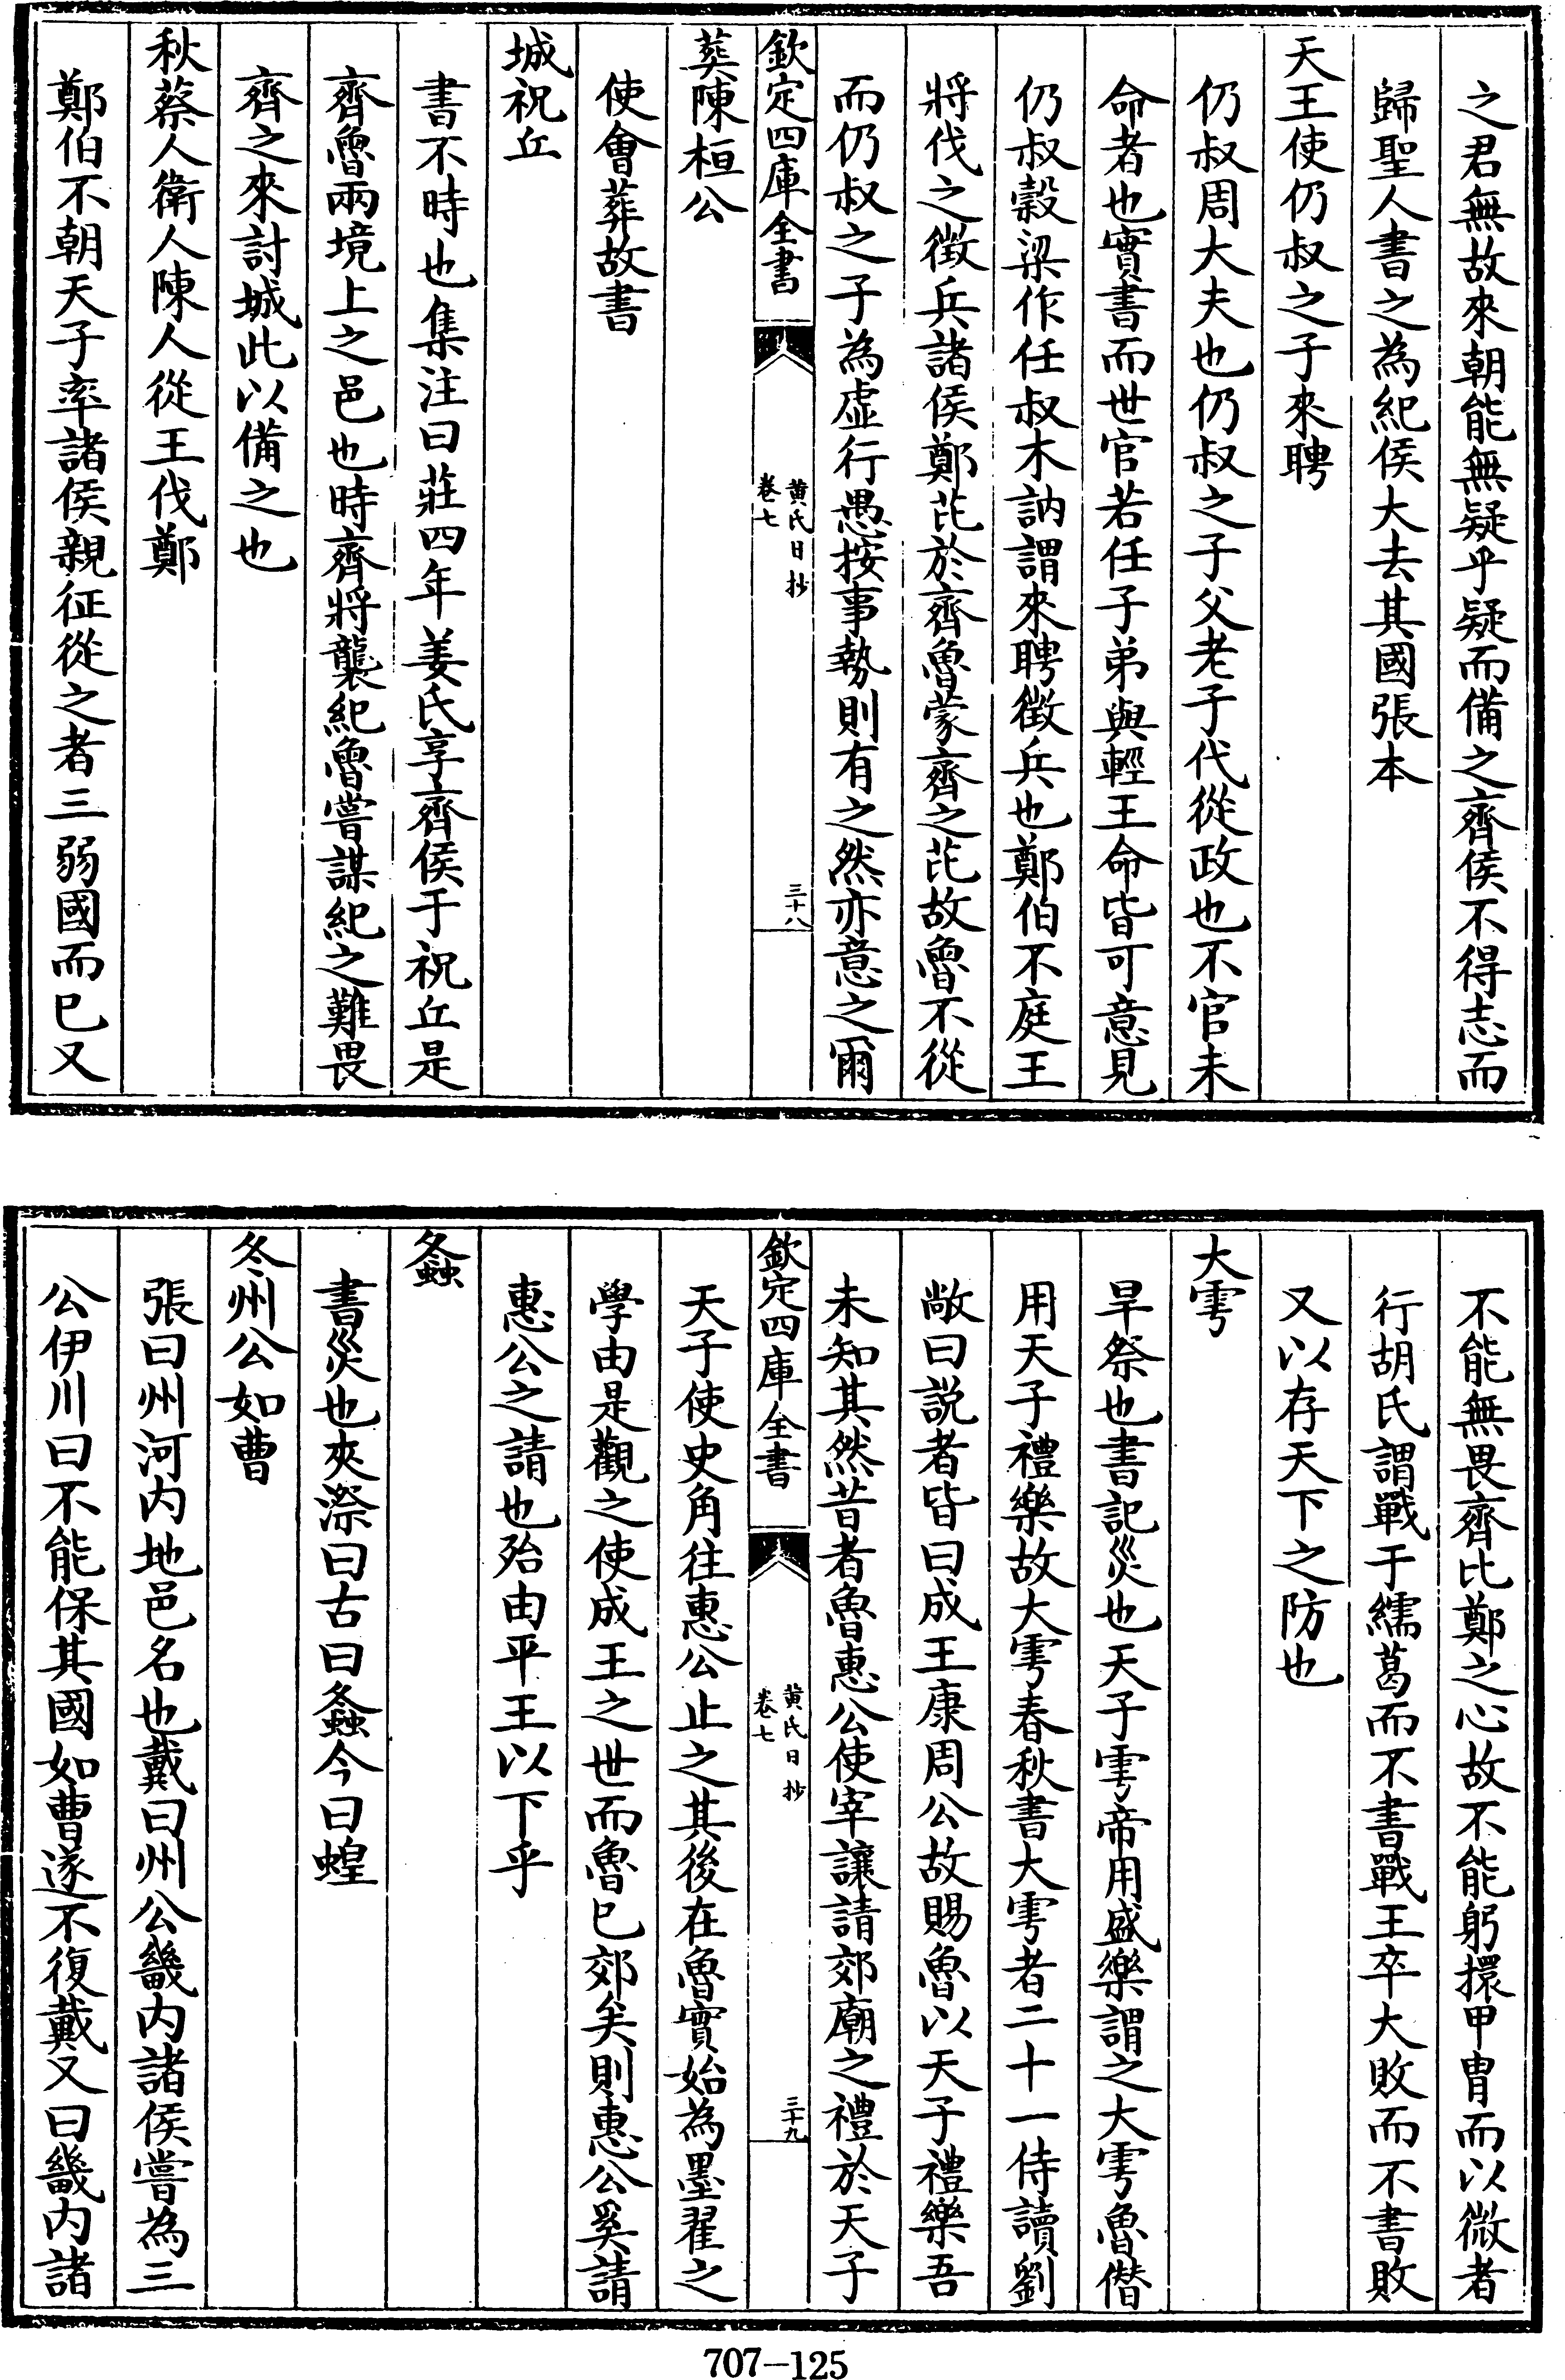 之君無故來朝能無疑乎疑而備之齊侯不得志而
歸聖人書之為紀侯大去其國張本
天王使仍叔之子來聘
仍叔周大夫也仍叔之子父老子代從政也不官未
命者也實書而世官若任子弟與輕王命皆可意見
仍叔穀梁作任叔木訥謂來聘徴兵也鄭伯不庭王
將伐之徴兵諸侯鄭芘於齊魯蒙齊之芘故魯不從
而仍叔之子為虚行愚按事勢則有之然亦意之爾
欽定四庫全書
黄氏日抄
卷七
三十八
葬陳桓公
使會葬故書
城祝丘
書不時也集注曰莊四年姜氏享齊侯于祝丘是
齊魯兩境上之邑也時齊將襲紀魯嘗謀紀之難畏
齊之來討城此以備之也
秋蔡人衛人陳人從王伐鄭
鄭伯不朝天子率諸侯親征從之者三弱國而已又
不能無畏齊比鄭之心故不能躬擐甲胄而以微者
行胡氏謂戰于繻葛而不書戰王卒大敗而不書敗
又以存天下之防也
大雩
旱祭也書記災也天子雩帝用盛樂謂之大雩魯僭
用天子禮樂故大雩春秋書大雩者二十一侍讀劉
敞曰説者皆曰成王康周公故賜魯以天子禮樂吾
未知其然昔者魯惠公使宰讓請郊廟之禮於天子
欽定四庫全書
黄氏日抄
卷七
三十九
天子使史角往惠公止之其後在魯實始為墨翟之
學由是觀之使成王之世而魯已郊矣則惠公奚請
惠公之請也殆由平王以下乎
螽
書災也夾漈曰古曰螽今曰蝗
冬州公如曹
張曰州河内地邑名也戴曰州公畿内諸侯嘗為三
公伊川曰不能保其國如曹遂不復戴又曰畿内諸
707-125